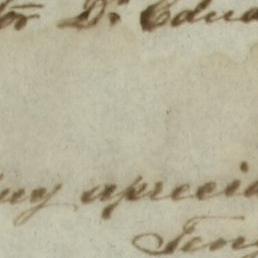 or Dr. Edua
uy apreci
Teng